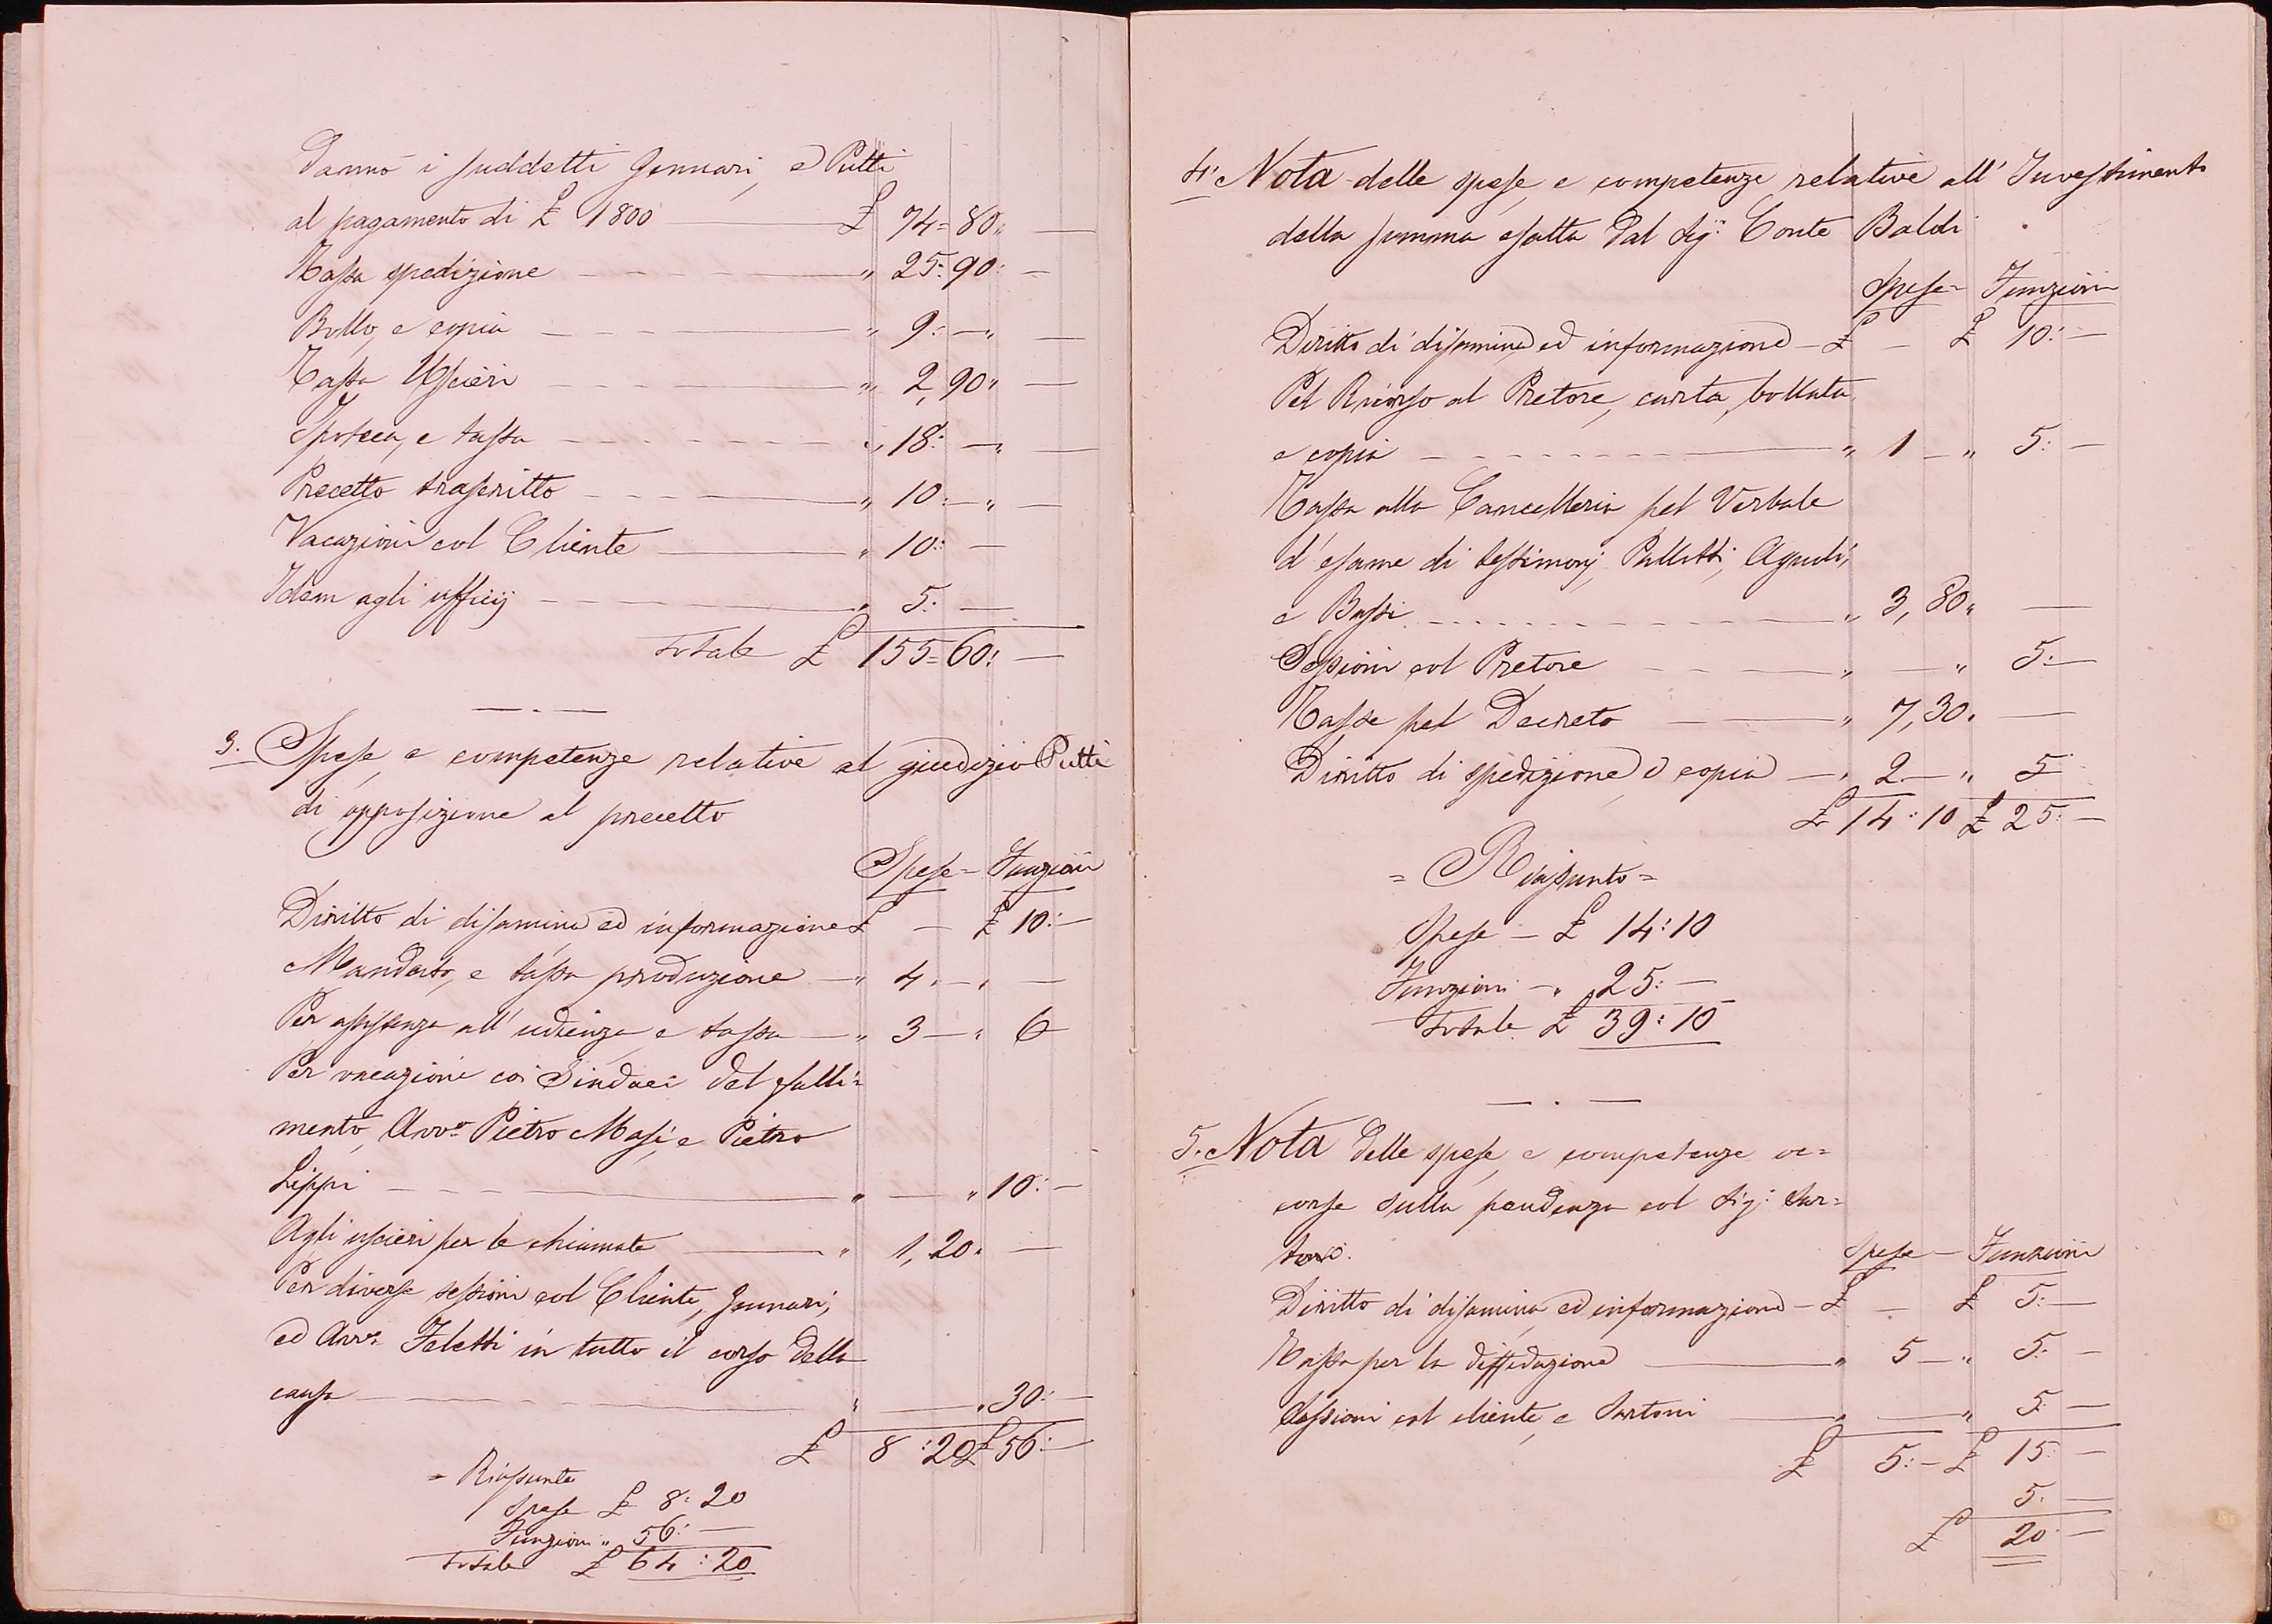 danno i suddetti Gennari, e Putti
al pagamento di £ 1800 — £ 74=80„ —
Tassa spedizione — „ 25:90: —
Bollo, e copia — „ 9:—„ —
Tassa Uscieri — „ 2,90„ —
Ipoteca, e tassa — „ 18:—„ —
Precetto trascritto — „ 10:—„ —
Vacazioni col Cliente — „ 10: —
Idem agli ufficj — „ 5: —
Totale £ 155=60: —
3. Spese, e competenze relative al giudizio Putti
di opposizione al precetto
Spese= Funzioni
Diritto di disamina ed informazione £ — £ 10:—
Mandato, e tassa produzione — „ 4„—„ —
Per assistenza all'udienza e tassa — „ 3—„ 6
Per vacazione coi Sindaci del falli=
mento, Avvo Pietro Masi, e Pietro
Lippi — „ — „ 10:—
Agli uscieri per le chiamate — „ 1,20„ —
Per diverse sessioni col Cliente, Gennari,
ed Avvo Feletti in tutto il corso della
causa — „ — „ 30:—
£ 8:20 £ 56:—
= Riassunto
Spese £ 8:20
Funzioni „ 56:—
Totale £ 64:20
4. Nota delle spese, e competenze relative all'Investimento
della somma esatta dal Sig: Conte Baldi
Spese= Funzioni
Diritto di disamina ed informazione — £ — £ 10:—
Pel Ricorso al Pretore, carta bollata,
e copia — „ 1 —„ 5:—
Tassa alla Cancelleria pel Verbale
d'esame di testimonj Palletti, Agudi,
e Bassi — „ 3,80„ —
Sessioni col Pretore — „ — „ 5:—
Tasse pel Decreto — „ 7,30„ —
Diritto di spedizione, e copia — „ 2—„ 5
£ 14:10 £ 25:—
= Riassunto =
Spese — £ 14:10
Funzioni — „ 25:—
Totale £ 39:10
5. Nota delle spese, e competenze oc=
corse sulla pendenza col Sig: Sar=
toni.
Spese — Funzioni
Diritto di disamina, ed informazione — £ — £ 5:—
Tassa per la diffidazione — „ 5—„ 5:—
Sessioni col cliente, e Sartoni — „ — „ 5:—
£ 5:— £ 15:—
5:—
£ 20:—